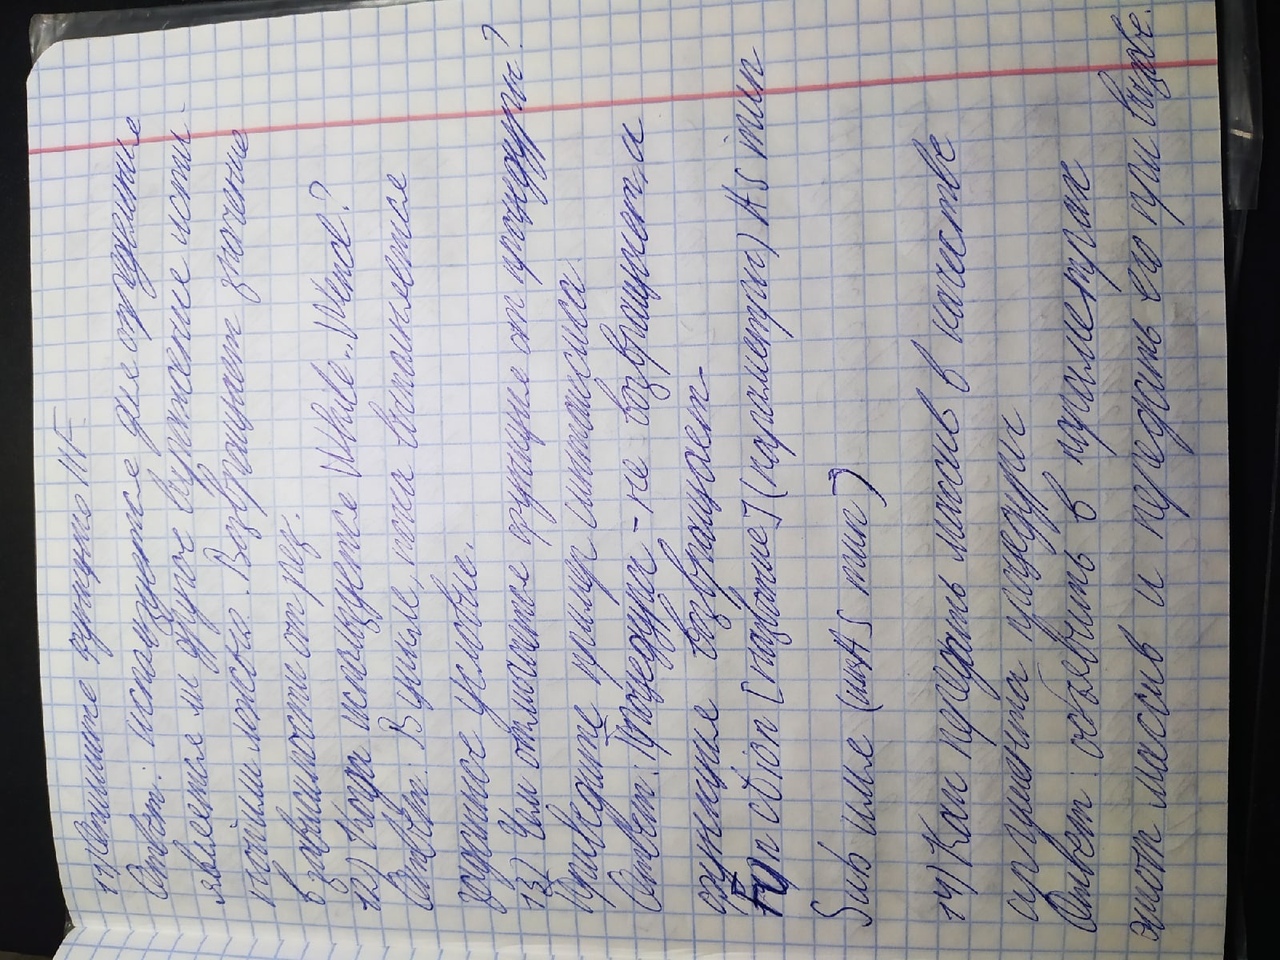 11) Опишите функцию IIF
Ответ: используется для определения
является ли другое выражение исти-
ным или ложью. Возвращает значение
в зависимости от рез.
12) Когда используется While..Wend?
Ответ: В цикле, пока выполняется
заданное условие.
13) Чем отличается функция от процедуры?
Приведите пример синтаксиса.
Ответ: Процедура - не возвращает, а
функция возвращает.
Function [название] (параметры) As тип
Sub имя (имя As тип)
14) Как передать массив в качестве
аргумента процедуры
Ответ: объявить в параметрах
этот массив и передать его при вызове.